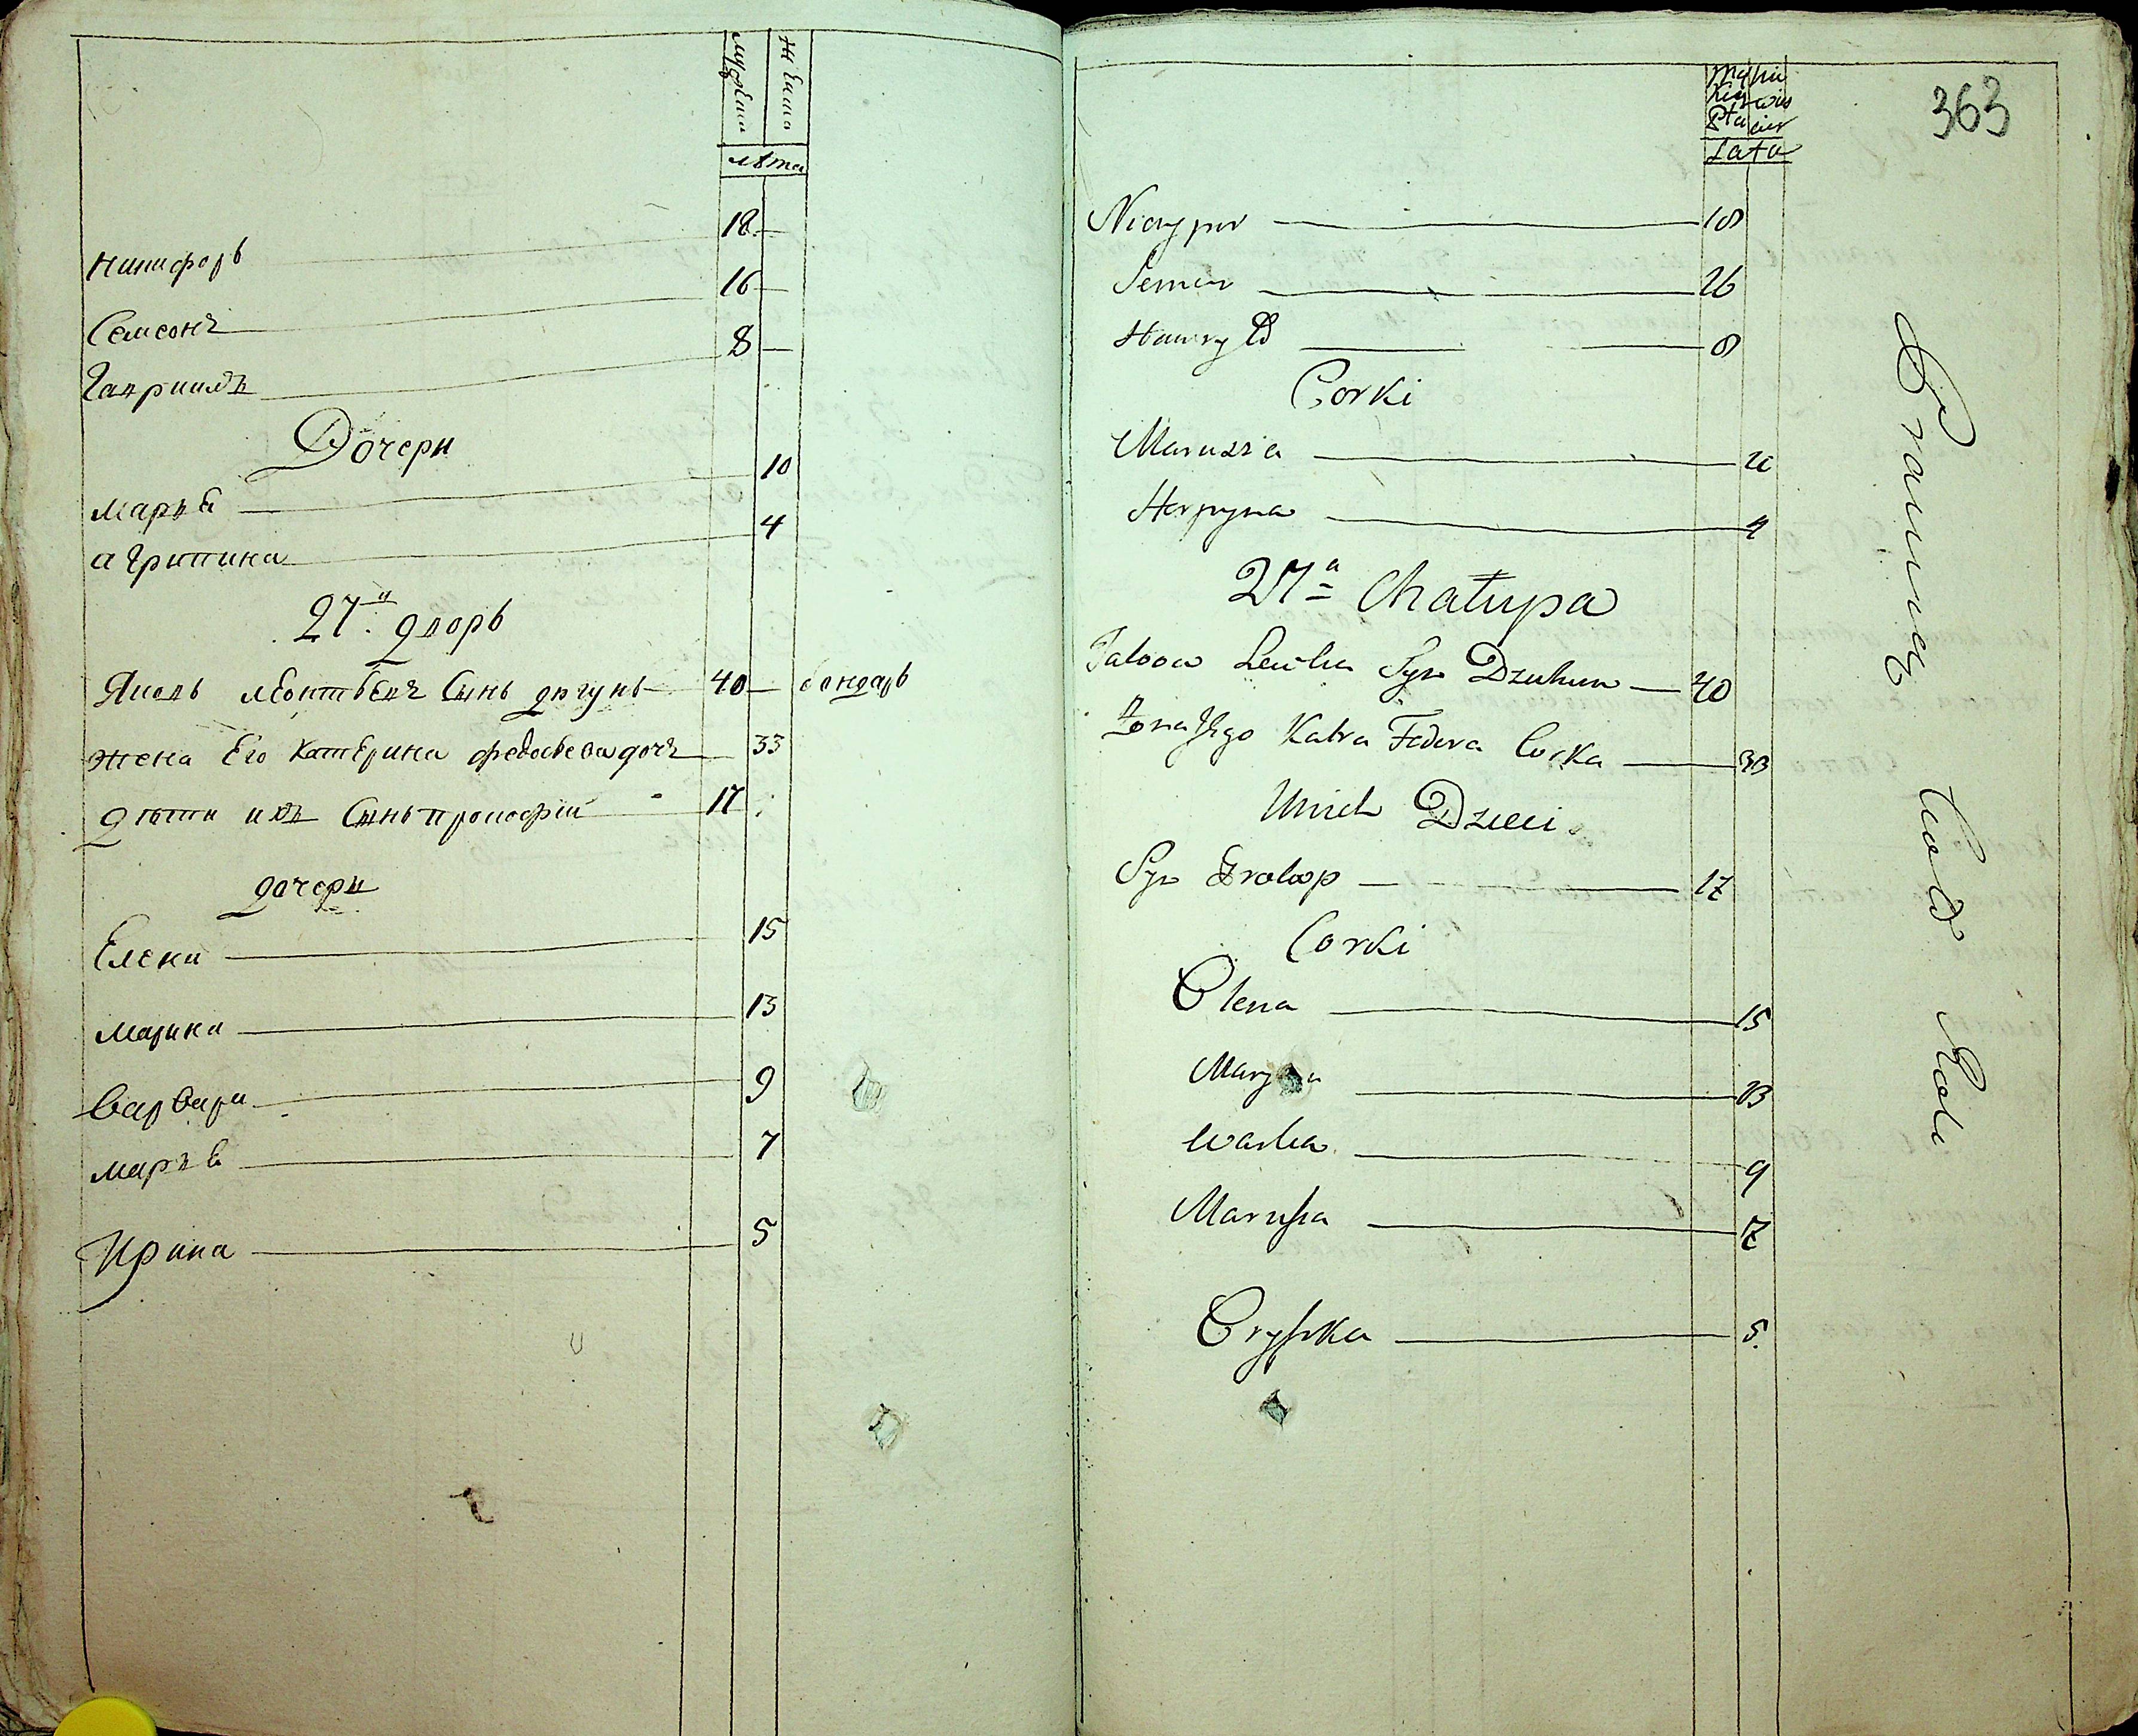 мужеска
женска
лѣта
Никифоръ 18
Семеонъ 16
Гавриилъ 8
Дочери
Марья 10
агрипина 4
27й дворъ
Яковъ леонтьевъ Сынъ дзугунъ 40 бондарь
жена Его катерина федосеева дочь 33
дѣти ихъ Сынъ прокофiй 17
дочери
Елена 15
марина 13
варвара 9
марья 7
Ирина 5
363
Męzkiey płci
Lata
Niczypor 18
Semen 16
Hawryło 8
Corki
Marussia
Horpyna 4
27a Chałupa
Jakow Lewka Syn Dzuhun 40
Żona Jego Katra Fedora Corka 33
Unich Dzieci
Syn Prokop 17
Corki
Olena 15
Maryna 13
Warka 9
Marusia 7
Oryszka 5